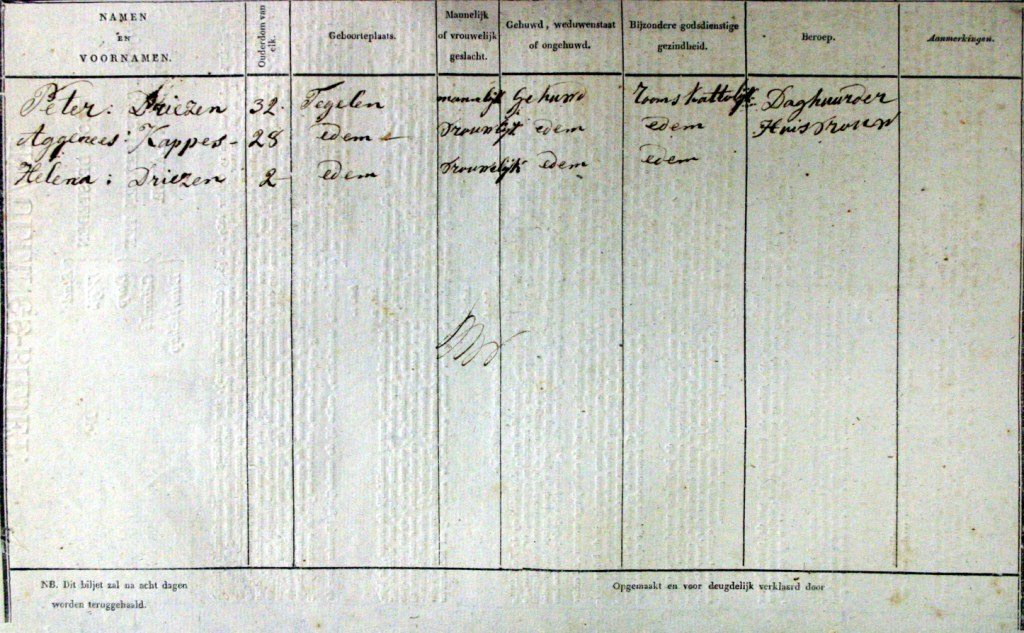 NAMEN EN VOORNAMEN. Ouderdom van elk. Geboorteplaats. Mannelijk of vrouwelijk geslacht. Gehuwd, weduwenstaat of ongehuwd. Bijzondere godsdienstige gezindheid. Beroep. Aanmerkingen.
Peter: Driezen 32. Tegelen mannlijk Gehuwd Rooms kattolijk: Daghuurder
Aggenees: Kappers - 28 edem vrouwlijk edem edem Huisvrouw
Helena: Driezen 2 edem vrouwelijk edem edem
NB. Dit biljet zal na acht dagen worden teruggehaald.
Opgemaakt en voor deugdelijk verklaard door